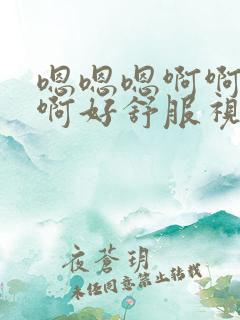 嗯嗯嗯啊啊
啊好舒服視
夜蒼玥
未经同意禁止转载